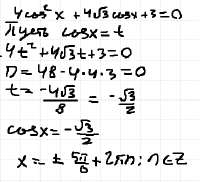 4cos²x + 4√3 cosx + 3 = 0
Пусть cosx = t
4t² + 4√3t + 3 = 0
D = 48 - 4·4·3 = 0
t = -4√3/8 = -√3/2
cosx = -√3/2
x = ± 5π/6 + 2πn; n∈Z